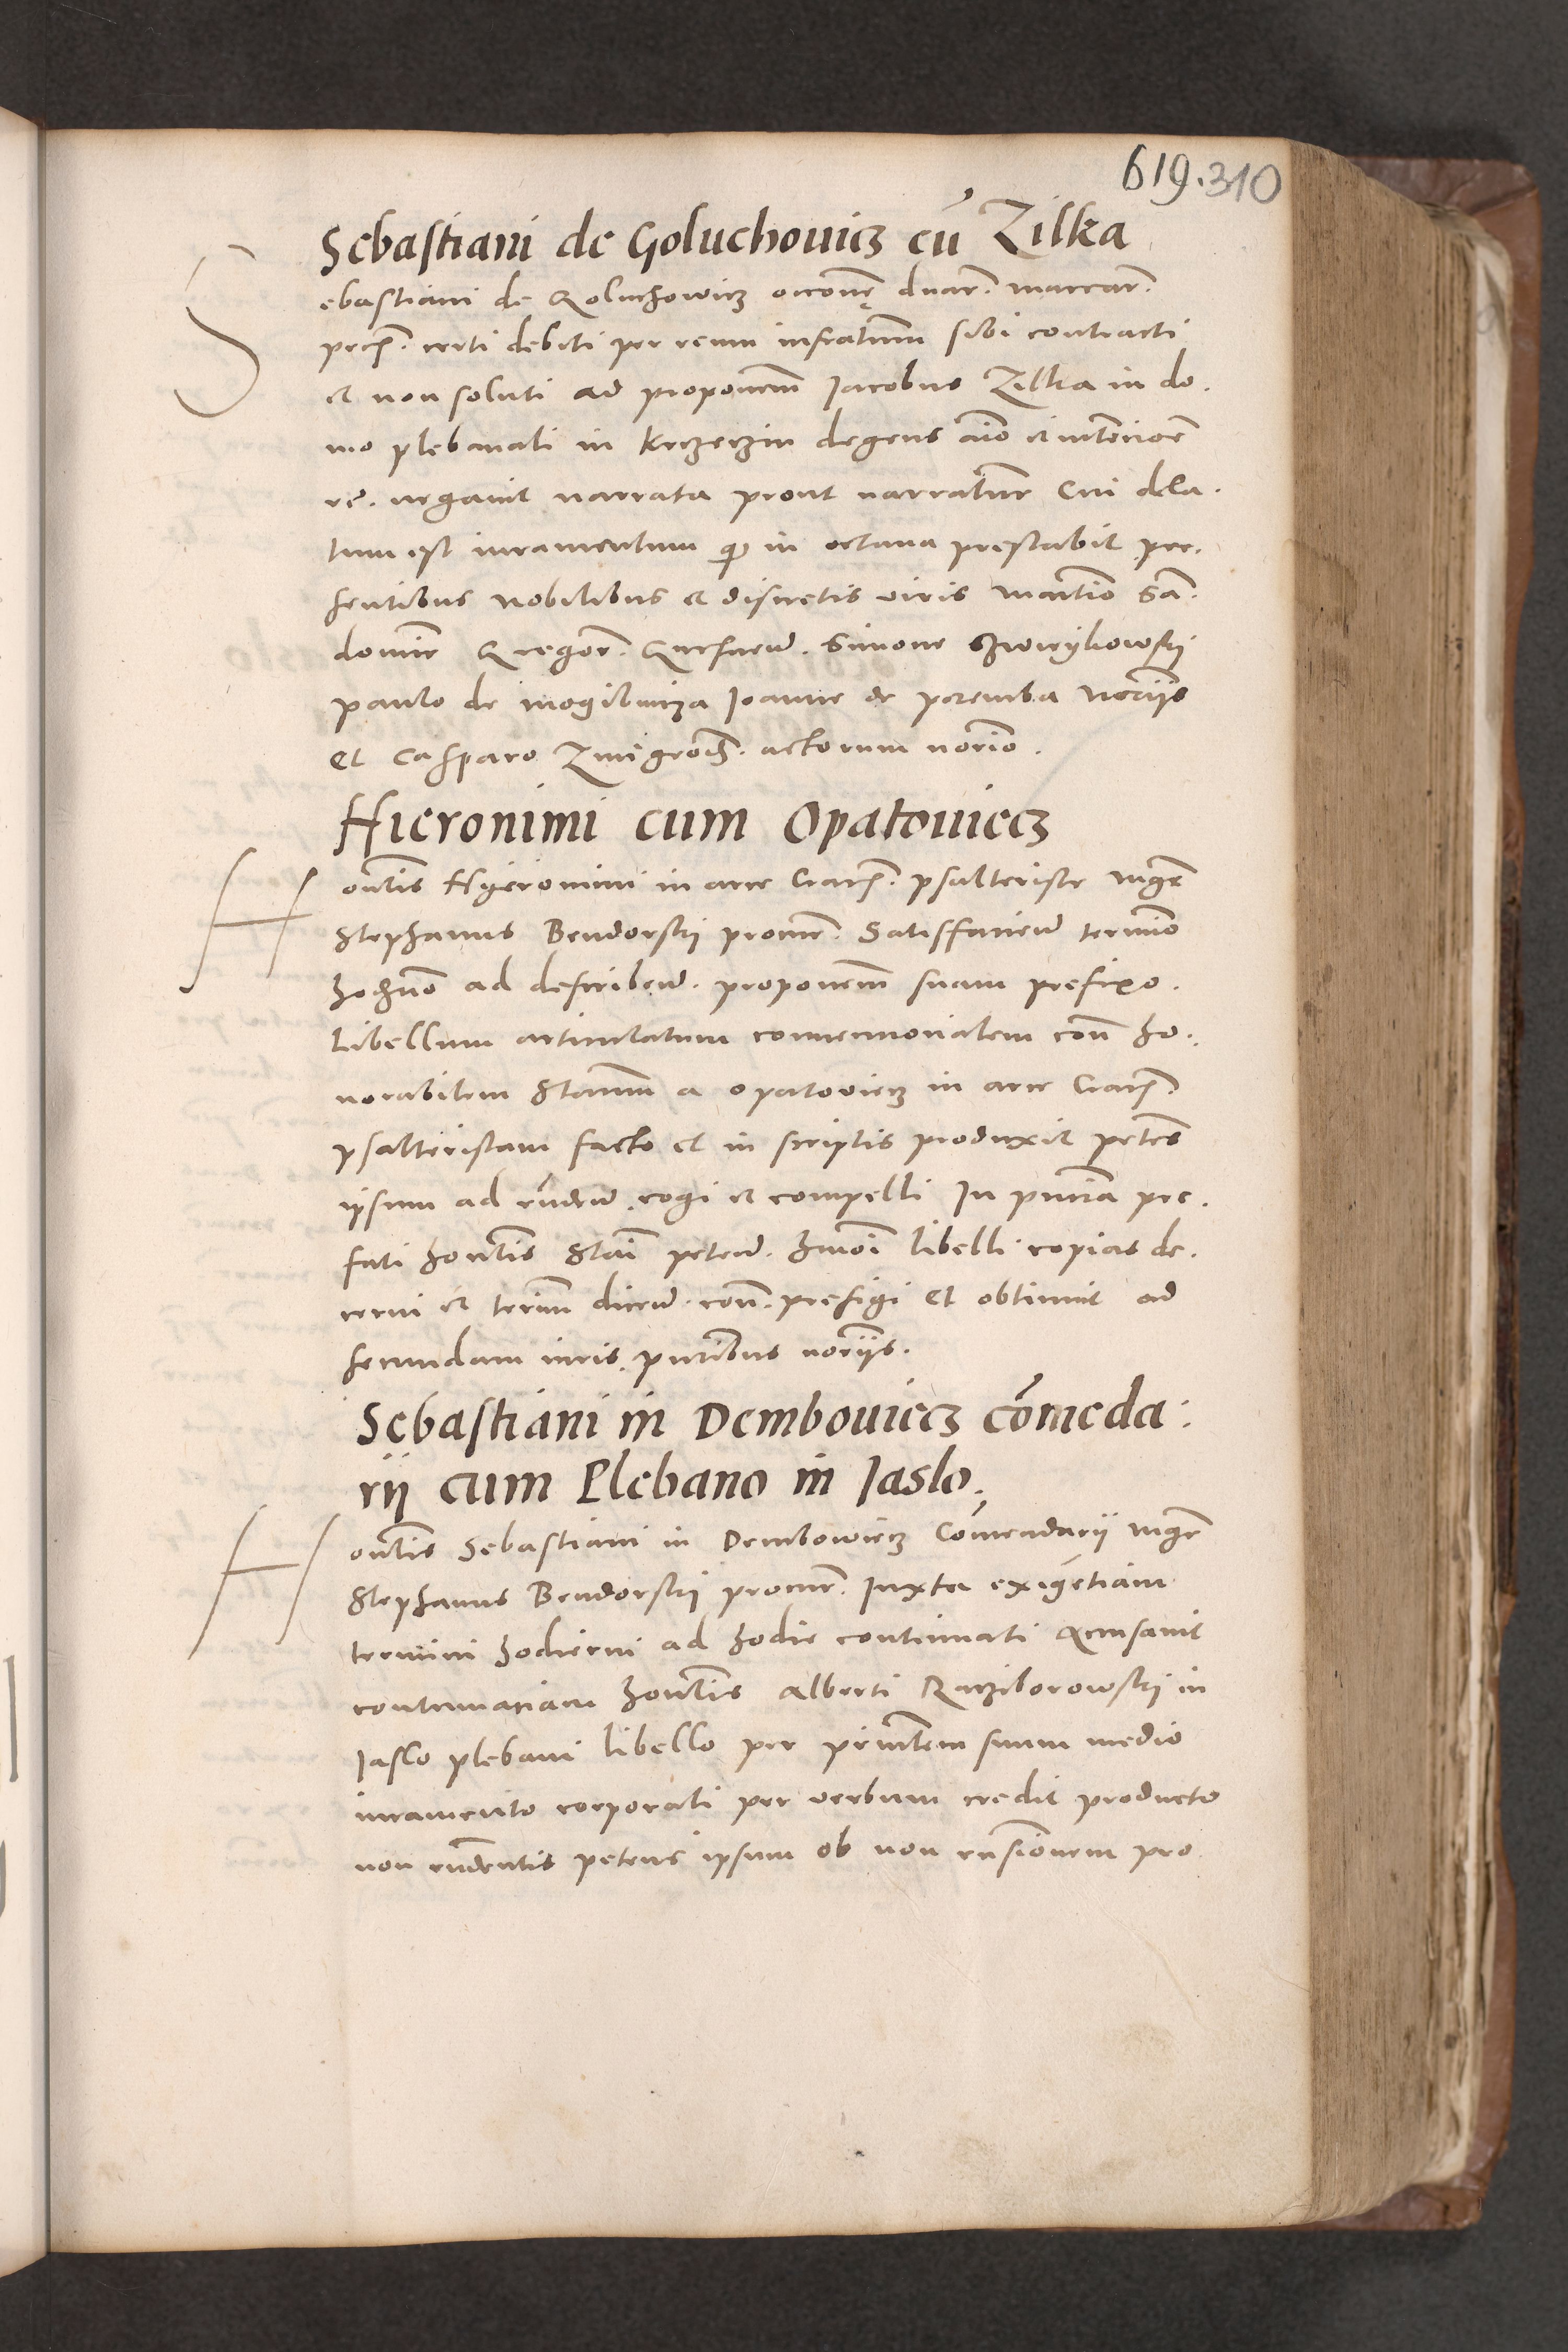 619.310
Sebastiani de Goluchouicz cū Zilka
Sebastiani de Goluchowicz occōne duar. marcar.
certi debiti per reum infratum sibi contracti
et non soluti ad proponem Iacobus Zilka in do.
mo plebanali in degens aīo
re. negauit narrata prout narrantur Cui dela.
tum est iuramentum qd in octaua prestabit pre.
sentibus nobilibus et discretis viris Martino Sā.
domir Gregor. Simone
paulo de mogilnicza Ioanne de poremba norijs
et Casparo Zmigrod. actorum norio.
Hieronimi cum Opatouiecz
Honlis Hyeronimi in arce Crac. psalteriste mgr
Stephanus Bendorski procur. Satisfaciend termino
hodierno ad describend. proponem suam prefixo.
Libellum articulatum conuencionalem con ho.
norabilem Stanum a opatowiecz in arce Crac.
psalteristam facto et in scriptis produxit petens
ipsum ad rndend. cogi et compelli In pntia pre.
fati honlis Stai petend. hmoi libelli copias de.
cerni et termin dicend. con. prefigi et obtinuit ad
secundam iuris. pntibus norijs.
Sebastiani in Dembouiecz cōmeda:
rij cum Plebano in Iaslo.
Honlis Sebastiani in Dembowiecz Cōmendarij mgr
Stephanus Bendorski procur. Iuxta exigētiam
termini hodierni ad hodie continuati accusauit
contumaciam honlis Alberti Raciborowski in
Iaslo plebani libello per princlem suum medio
iuramento corporali per verbum credit producto
non rndentis petens ipsum ob non rnsionem pro